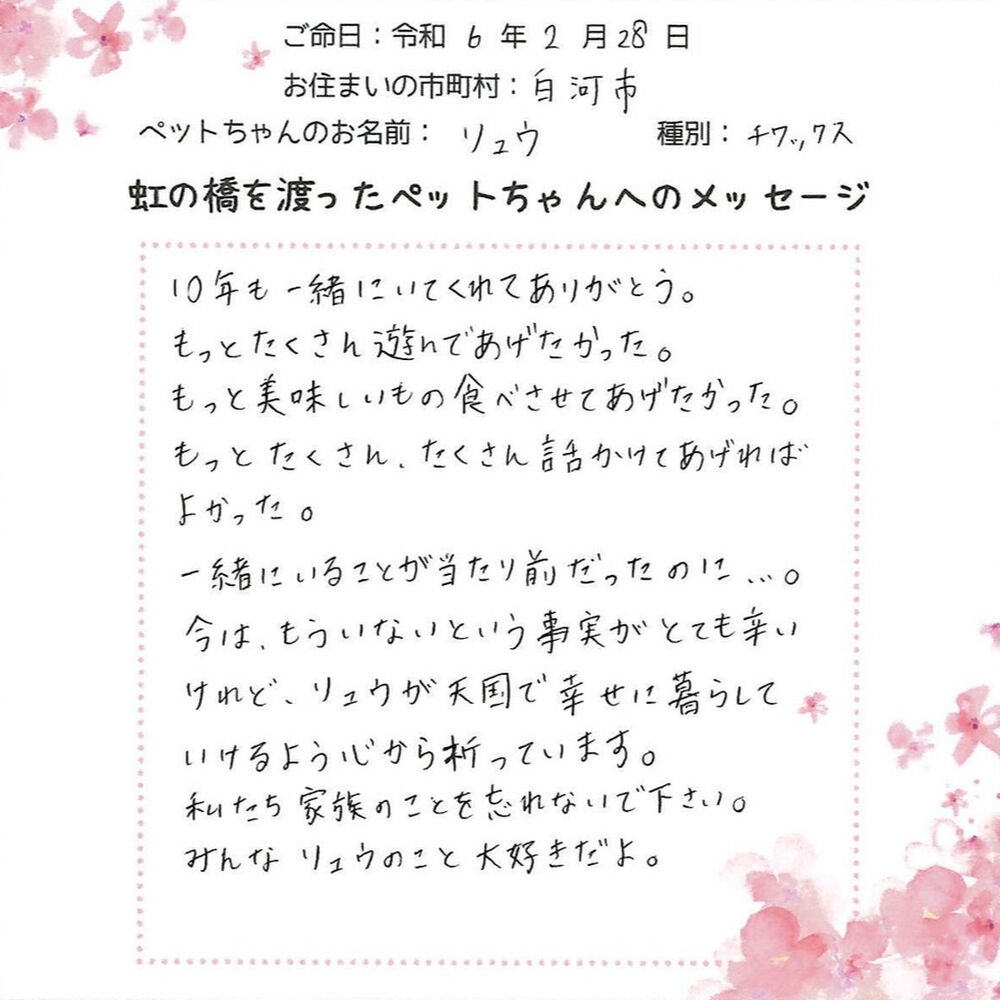 ご命日：令和 6 年 2 月 28 日
お住まいの市町村：白河市
ペットちゃんのお名前： リュウ 種別：チワックス
虹の橋を渡ったペットちゃんへのメッセージ
10年も一緒にいてくれてありがとう。
もっとたくさん遊んであげたかった。
もっと美味しいもの食べさせてあげたかった。
もっとたくさん、たくさん話かけてあげれば
よかった。
一緒にいることが当たり前だったのに…。
今は、もういないという事実がとても辛い
けれど、リュウが天国で幸せに暮らして
いけるよう心から祈っています。
私たち家族のことを忘れないで下さい。
みんなリュウのこと大好きだよ。